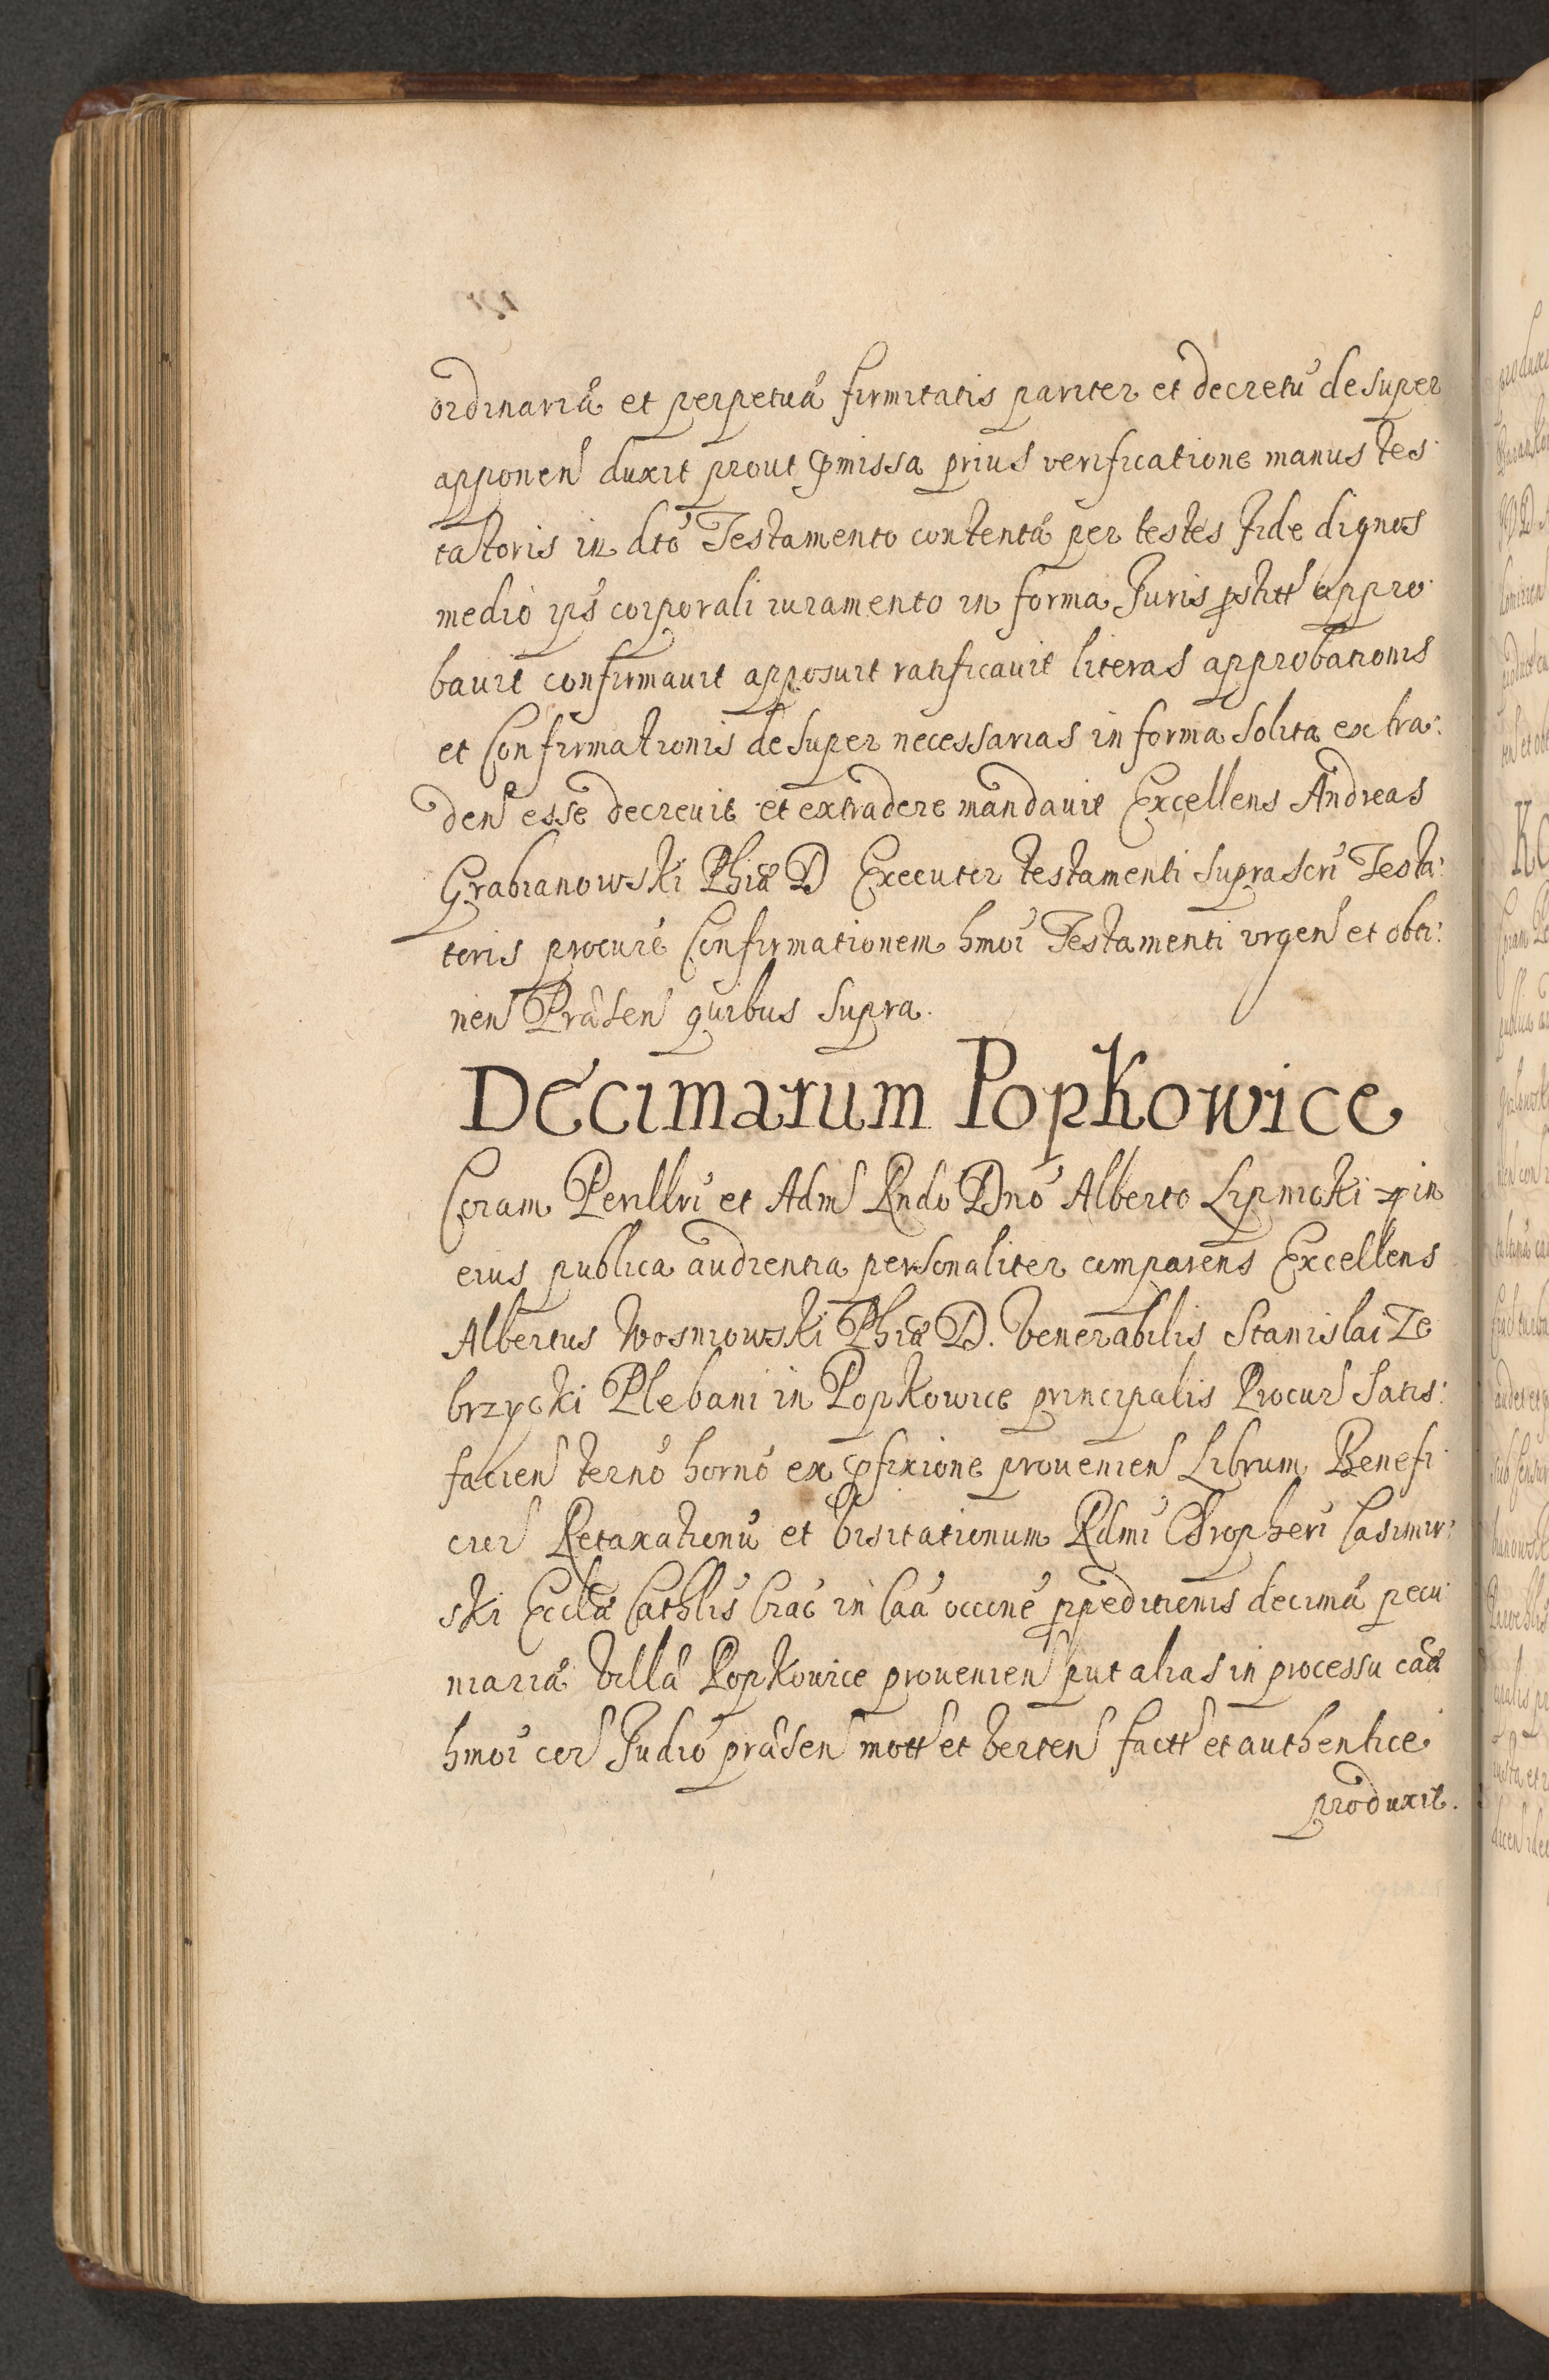 ordinariã et perpetuã firmitatis pariter et decretũ desuper
apponen duxit prout pmissa prius verificatione manus tes
tatoris in dto Testamento contentã per testes fide dignos
medio ips corporali iuramento in forma Juris pstitt appro
bavit confirmavit apposuit ratificavit literas approbationis
et Confirmationis desuper necessarias in forma solita extra:
den esse decrevit et extradere mandavit Excellens Andreas
Grabianowski Phiæ D Executor testamenti suprascri Testa:
toris procurẽ Confirmationem hmoi Testamenti urgen et obti:
nen Præsen quibus supra.
Decimarum Popkowice
Coram Perillri et Adm Rndo Dno Alberto Lipnicki in
eius publica audientia personaliter comparens Excellens
Albertus Wosniowski Phiæ D. Venerabilis Stanislai Ze
brzycki Plebani in Popkowice principalis Procur Satis:
facien termo horno ex pfixione provenien Librum Benefi
cior Retaxationũ et Visitationum Rdmi Chropheri Casimir:
ski Ecclæ Cathlis Crac in Caa occone ppeditionis decimã pecu
niariã Villæ Popkowice provenien put alias in processu caã
hmoi cor Judio præsen mott et verten factt et authentice
produxit.